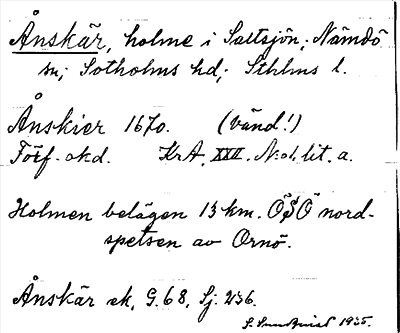 Ånskär, holme i Saltsjön; Nämdö
sn; Sotholms hd; Sthlms l.
Ånskier 1670. (vänd!)
Förf. okd. KrA, XXII. N:o 1, lit. a.
Holmen belägen 13 km. ÖSÖ nord-
spetsen av Ornö.
Ånskär ek. G. 68, Sj. 236.
S. Sundquist 1935.